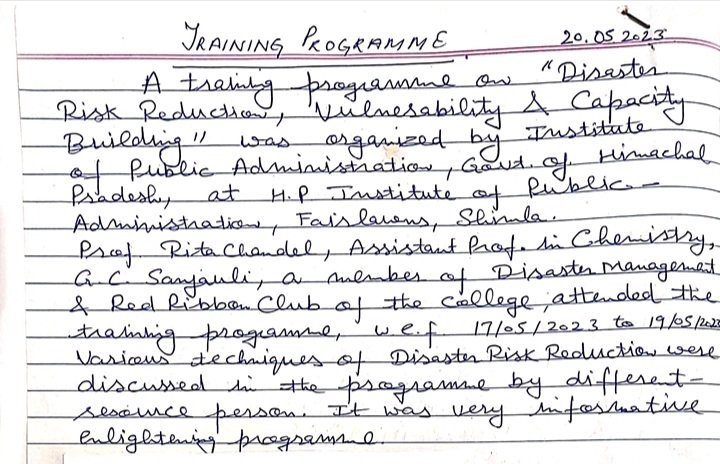 TRAINING PROGRAMME 20.05.2023
A training programme on "Disaster
Risk Reduction, Vulnerability & Capacity
Building" was organized by Institute
of Public Administration, Govt. of Himachal
Pradesh, at H.P Institute of Public -
Administration, Fairlawns, Shimla.
Prof. Rita Chandel, Assistant Prof. in Chemistry,
G.C. Sanjauli, a member of Disaster Management
& Red Ribbon Club of the College, attended the
training programme, w.e.f 17/05/2023 to 19/05/2023
Various techniques of Disaster Risk Reduction were
discussed in the programme by different-
resource person. It was very informative
enlightening programme.